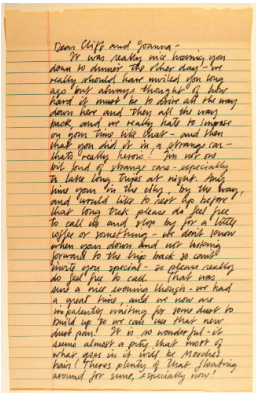 Dear Cliff and Joanna -
It was really nice having you
down to dinner the other day - we
really should have invited you long
ago but always thought of how
hard it must be to drive all the way
down here and then all the way
back, and we really hate to impose
on your time like that - and then
that you did it in a strange car -
thats really heroic! I'm not one
bit fond of strange cars - especially
in late long drives at night. Any
time your in the city, by the way,
and would like to rest up before
that long trek please do feel free
to call us and stop by for a little
coffee or something. We don't know
when your down and not looking
forward to the trip back so can't
invite you special - so please really
do feel free to call. That was
such a nice evening though - we had
a great time, and we now are
impatiently waiting for some dust to
build up so we can use that new
dust pan! It is so wonderful - it
seems almost a pity that most of
what goes in it will be
hair! Theres plenty of that floating
around for sure, especially now!